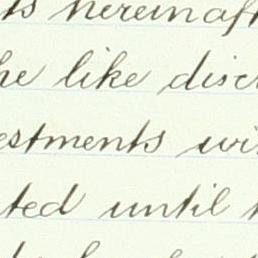 ts hereinaft
he like discr
estments wi
ted until